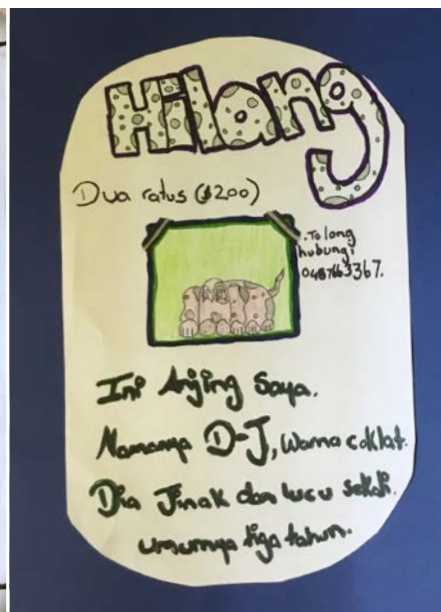 Hilang
Dua ratus ($200)
.Tolong
hubungi
0487663367.
Ini Anjing Saya.
Namanya D-J, Warna coklat.
Dia Jinak dan lucu sekali.
umurnya tiga tahun.